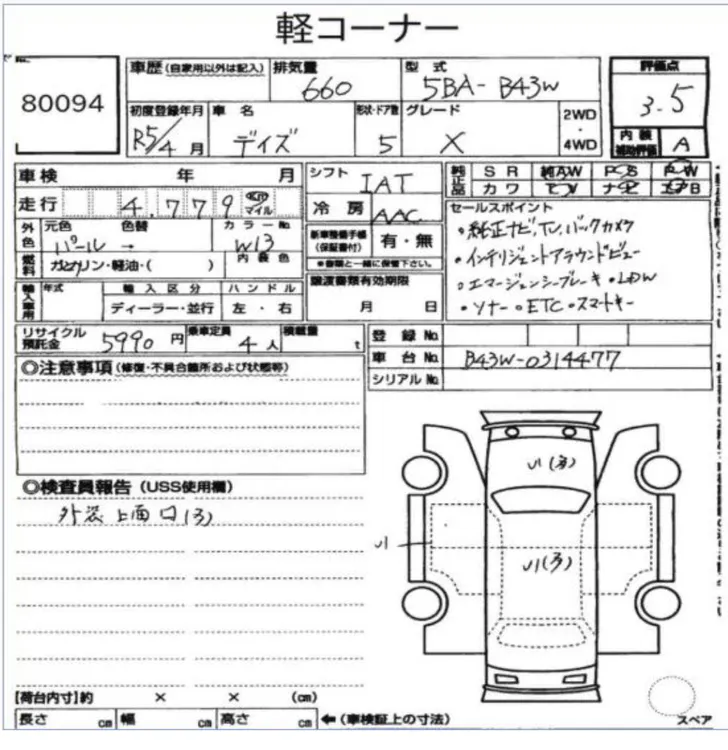 軽コーナー
80094
車歴(自家用以外は記入) 排気量 型式 評価点
660 5BA-B43W 3.5
初度登録年月 車名 形状・ドア数 グレード 2WD・4WD 内装補助評価
R5/4月 デイズ 5 X A
車検 年 月 シフト IAT 純正品 SR 純AW PS PW
走行 4,779 km マイル 冷房 AAC カワ TV ナビ エアB
外色 元色 色替 カラーNo. 新車整備手帳(保証書付) 有・無
パール → W13 内装色 ●書類と一緒に保管下さい。
燃料 ガソリン・軽油・( )
セールスポイント
・純正ナビ,TV,バックカメラ
・インテリジェントアラウンドビュー
・エマージェンシーブレーキ・LDW
・ソナー・ETC・スマートキー
輸入車用 年式 輸入区分 ハンドル 譲渡書類有効期限
ディーラー・並行 左・右 月 日
リサイクル預託金 5990円 乗車定員 4人 積載量 t
登録No.
車台No. B43W-0314477
シリアルNo.
◎注意事項(修復・不具合箇所および状態等)
◎検査員報告(USS使用欄)
外装上面口(多)
リ(多)
リ
リ(多)
【荷台内寸】約 × × (cm)
長さ cm 幅 cm 高さ cm ←(車検証上の寸法)
スペア